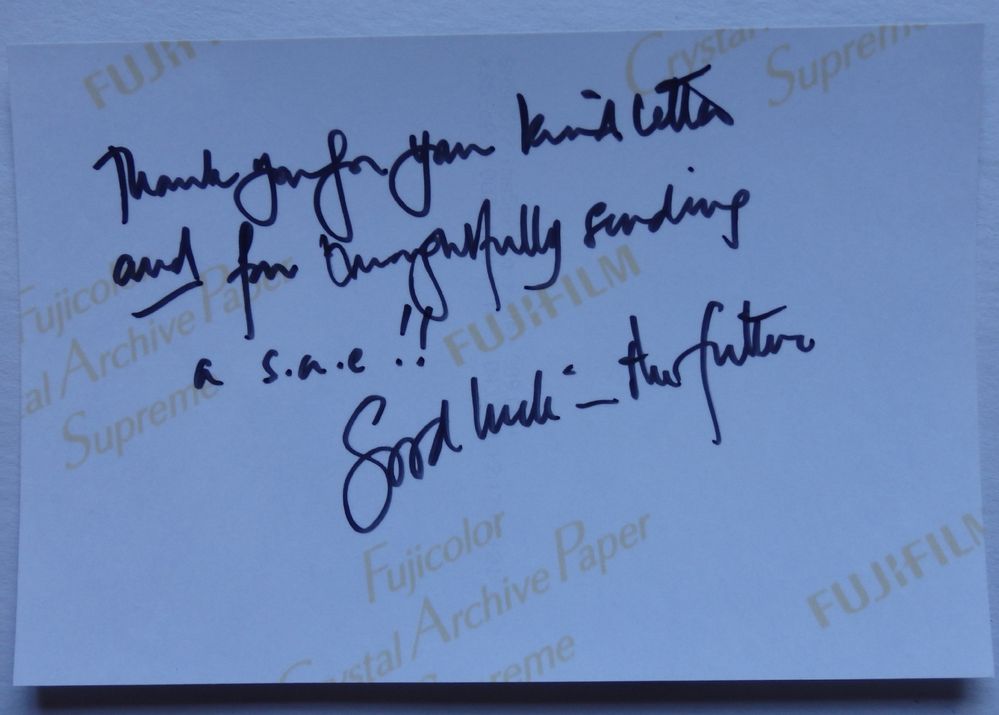 FUJIFILM
Crystal
Supreme
Thank you for your kind letter
and for thoughtfully sending
a s.a.e !!
Good luck in the future
Fujicolor
Crystal Archive Paper
Supreme
FUJIFILM
Fujicolor
Crystal Archive Paper
Supreme
FUJIFILM